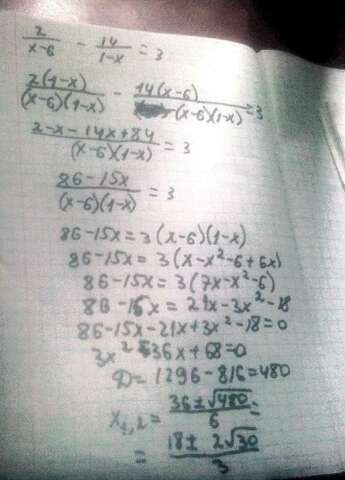 2/(x-6) - 14/(1-x) = 3
2(1-x)/((x-6)(1-x)) - 14(x-6)/((x-6)(1-x)) = 3
(2-x-14x+84)/((x-6)(1-x)) = 3
(86-15x)/((x-6)(1-x)) = 3
86-15x = 3(x-6)(1-x)
86-15x = 3(x-x²-6+6x)
86-15x = 3(7x-x²-6)
86-15x = 21x-3x²-18
86-15x-21x+3x²-18=0
3x²-36x+68=0
D=1296-816=480
x₁,₂ = (36±√480)/6 =
= (18±2√30)/3